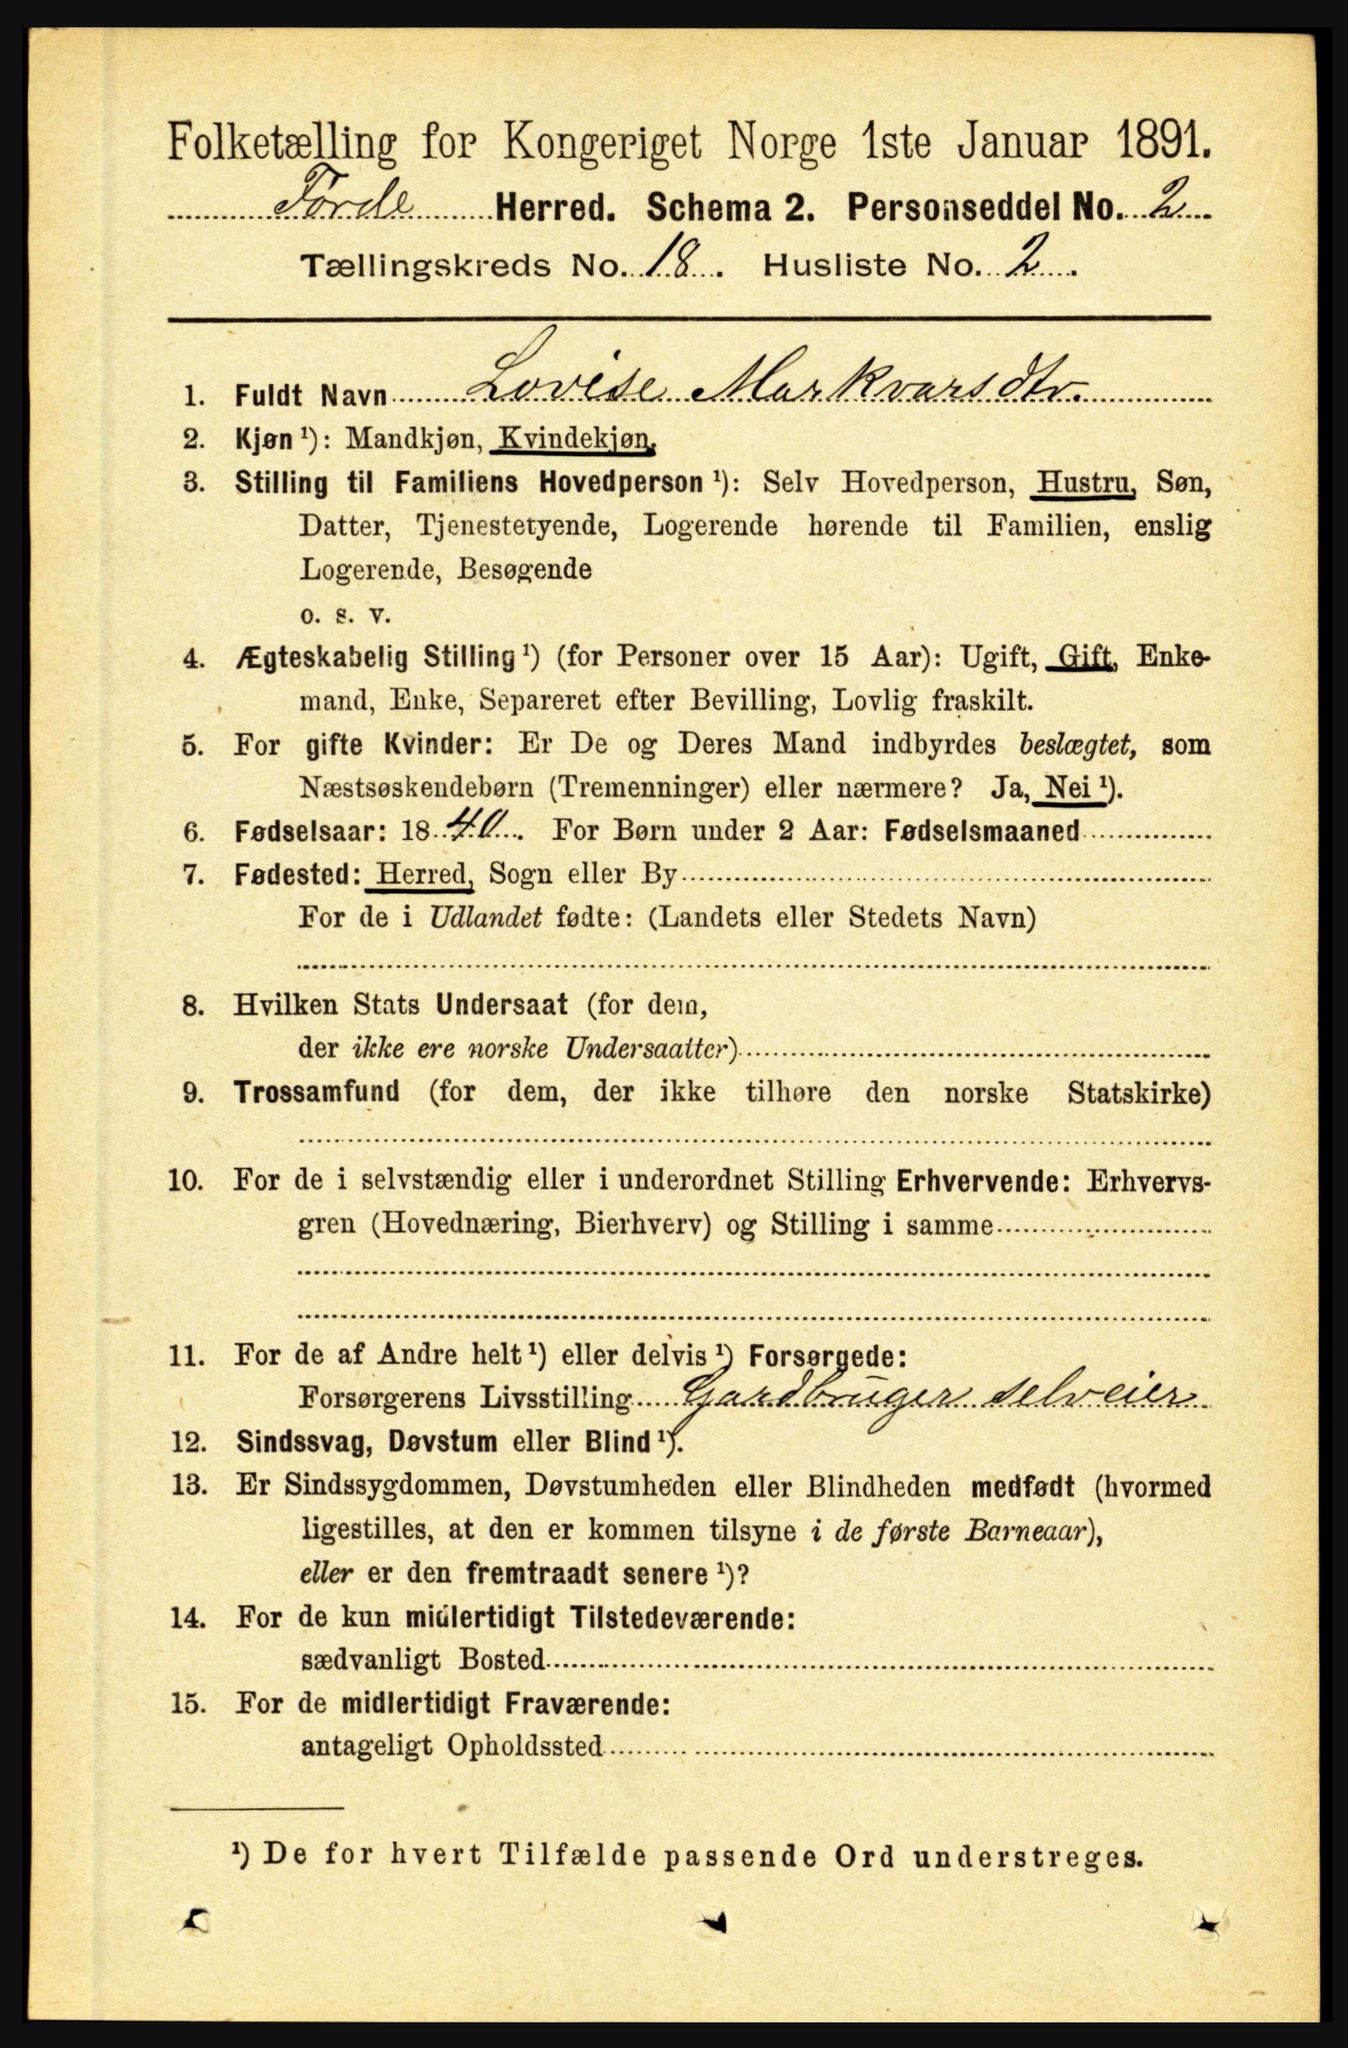 Folketælling for Kongeriget Norge 1ste Januar 1891.
Førde Herred. Schema 2. Personseddel No. 2
Tællingskreds No. 18. Husliste No. 2.
1. Fuldt Navn Lovise Markvarsdtr.
2. Kjøn ¹): Mandkjøn, Kvindekjøn.
3. Stilling til Familiens Hovedperson ¹): Selv Hovedperson, Hustru, Søn,
Datter, Tjenestetyende, Logerende hørende til Familien, enslig
Logerende, Besøgende
o. s. v.
4. Ægteskabelig Stilling ¹) (for Personer over 15 Aar): Ugift, Gift, Enke-
mand, Enke, Separeret efter Bevilling, Lovlig fraskilt.
5. For gifte Kvinder: Er De og Deres Mand indbyrdes beslægtet, som
Næstsøskendebørn (Tremenninger) eller nærmere? Ja, Nei ¹).
6. Fødselsaar: 1840. For Børn under 2 Aar: Fødselsmaaned
7. Fødested: Herred, Sogn eller By
For de i Udlandet fødte: (Landets eller Stedets Navn)
8. Hvilken Stats Undersaat (for dem,
der ikke ere norske Undersaatter)
9. Trossamfund (for dem, der ikke tilhøre den norske Statskirke)
10. For de i selvstændig eller i underordnet Stilling Erhvervende: Erhvervs-
gren (Hovednæring, Bierhverv) og Stilling i samme
11. For de af Andre helt ¹) eller delvis ¹) Forsørgede:
Forsørgerens Livsstilling Gardbruger selveier
12. Sindssvag, Døvstum eller Blind ¹).
13. Er Sindssygdommen, Døvstumheden eller Blindheden medfødt (hvormed
ligestilles, at den er kommen tilsyne i de første Barneaar),
eller er den fremtraadt senere ¹)?
14. For de kun midlertidigt Tilstedeværende:
sædvanligt Bosted
15. For de midlertidigt Fraværende:
antageligt Opholdssted
¹) De for hvert Tilfælde passende Ord understreges.